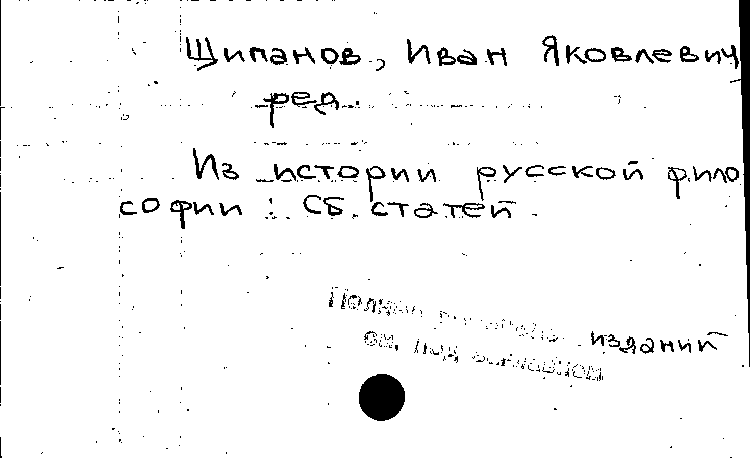 Щипанов, Иван Яковлевич
ред.
Из истории русской фило
софии : Сб. статей.
Полный изданий
см. под заглавием